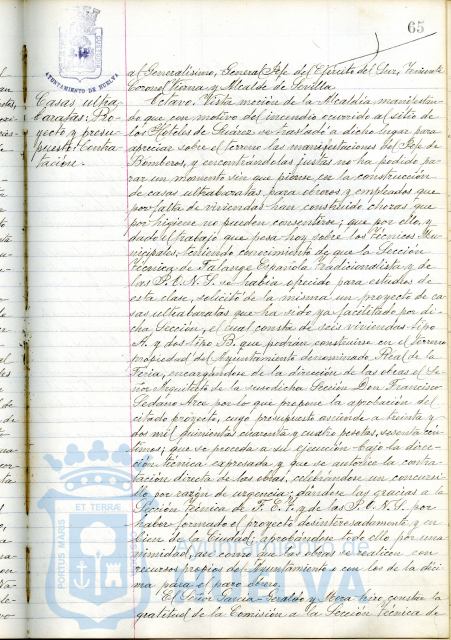 65
AYUNTAMIENTO DE HUELVA
al Generalísimo, General Jefe del Ejército del Sur, Teniente
Coronel Yerna y Alcalde de Sevilla
Casas ultra
baratas. Pro
yecto y presu
puesto. Contra
tación.
Octavo. Vista moción de la Alcaldía manifestan-
do que con motivo del incendio ocurrido al sitio de
los Hoteles de Suárez se trasladó a dicho lugar para
apreciar sobre el terreno las manifestaciones del Jefe de
Bomberos, y encontrándolas justas no ha podido pa-
rar un momento sin que piense en la construcción
de casas ultrabaratas para obreros y empleados que
por falta de viviendas han construido chozas que
por higiene no pueden consentirse; que por ello, y
dado el trabajo que pesa hoy sobre los Técnicos Mu-
nicipales, teniendo conocimiento de que la Sección
técnica de Falange Española Tradicionalista y de
las J.O.N.S. se había ofrecido para estudios de
esta clase, solicitó de la misma un proyecto de ca-
sas ultrabaratas que ha sido ya facilitado por di-
cha Sección, el cual consta de seis viviendas tipo
A. y dos tipo B. que podrán construirse en el terreno
propiedad del Ayuntamiento denominado Real de la
Feria, encargándose de la dirección de las obras el Se-
ñor Arquitecto de la susodicha Sección Don Francisco
Sedano Arce por lo que propone la aprobación del
citado proyecto, cuyo presupuesto asciende a treinta y
dos mil quinientas cuarenta y cuatro pesetas, sesenta cén-
timos; que se proceda a su ejecución bajo la direc-
ción técnica expresada y que se autorice la contra-
tación directa de las obras, celebrándose un concursi-
llo por razón de urgencia; dándose las gracias a la
Sección Técnica de F.E.T. y de las J.O.N.S. por
haber formado el proyecto desinteresadamente y en
bien de la Ciudad; aprobándose todo ello por una-
nimidad, así como que las obras se realicen con
recursos propios del Ayuntamiento o con los de la déci-
ma para el paro obrero.
El Señor García-Geraldo y Mora hizo constar la
gratitud de la Comisión a la Sección técnica de
PORTUS MARIS ET TERRÆ